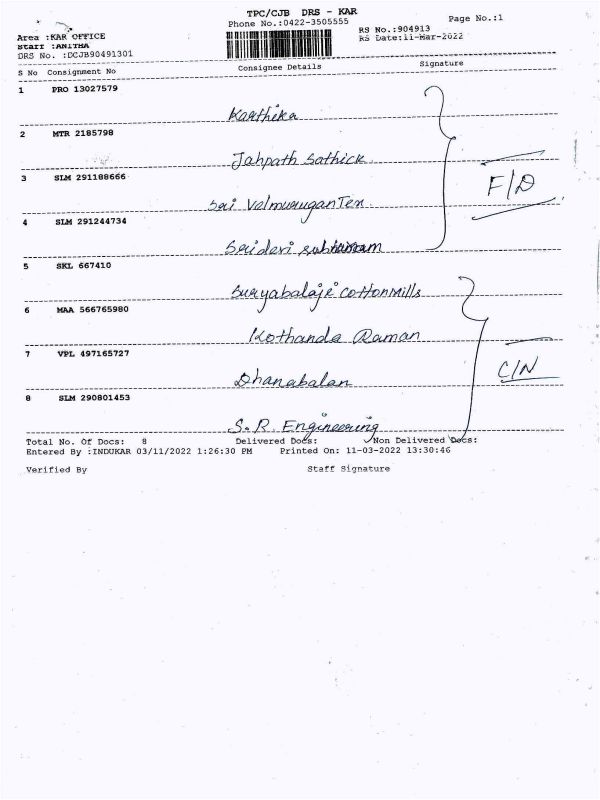 TPC/CJB DRS - KAR
Phone No.:0422-3505555
Page No.:1
Area :KAR OFFICE
RS No.:904913
Staff :ANITHA
RS Date:11-Mar-2022
DRS No. :DCJB90491301
S No Consignment No Consignee Details Signature
1 PRO 13027579
Karthika
2 MTR 2185798
Jahpath Sathick
3 SLM 291188666
F/D
Sri Velmurugan Tex
4 SLM 291244734
Sridevi
5 SKL 667410
Suryabalaje Cotton Mills
6 MAA 566765980
Kothanda Raman
7 VPL 497165727
C/N
Dhanabalan
8 SLM 290801453
S.R. Engineering
Total No. Of Docs: 8 Delivered Docs: Non Delivered Docs:
Entered By :INDUKAR 03/11/2022 1:26:30 PM Printed On: 11-03-2022 13:30:46
Verified By Staff Signature